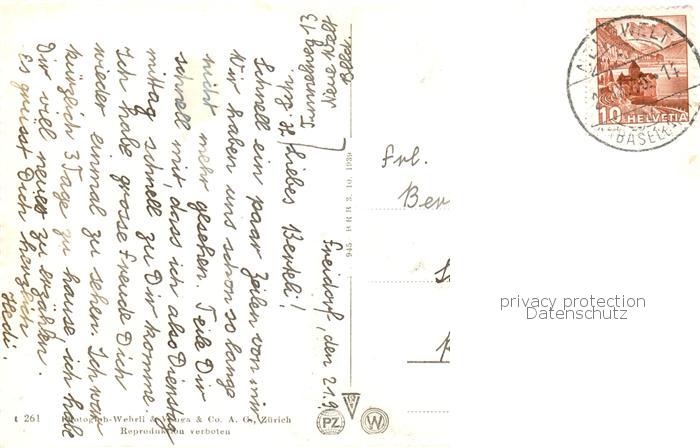 Freidorf, den 21.9.
Liebes Berteli!
Schnell ein paar Zeilen von mir
Wir haben uns schon so lange
nicht mehr gesehen. Teile Dir
schnell mit, dass ich also Dienstag
mittag schnell zu Dir komme.
Ich habe grosse Freude Dich
wieder einmal zu sehen. Ich war
kürzlich 3 Tage zu hause, ich habe
Dir viel neues zu erzählen.
Es grüsst Dich herzlich
Hedi.
Neue
945 BRB 3. 10. 1939
Frl.
Ber
HELVETIA
10
NEUEWELT
(BASELLAND)
privacy protection
Datenschutz
t 261
Photoglob-Wehrli & Vouga & Co. A. G., Zürich
Reproduktion verboten
PZ
W